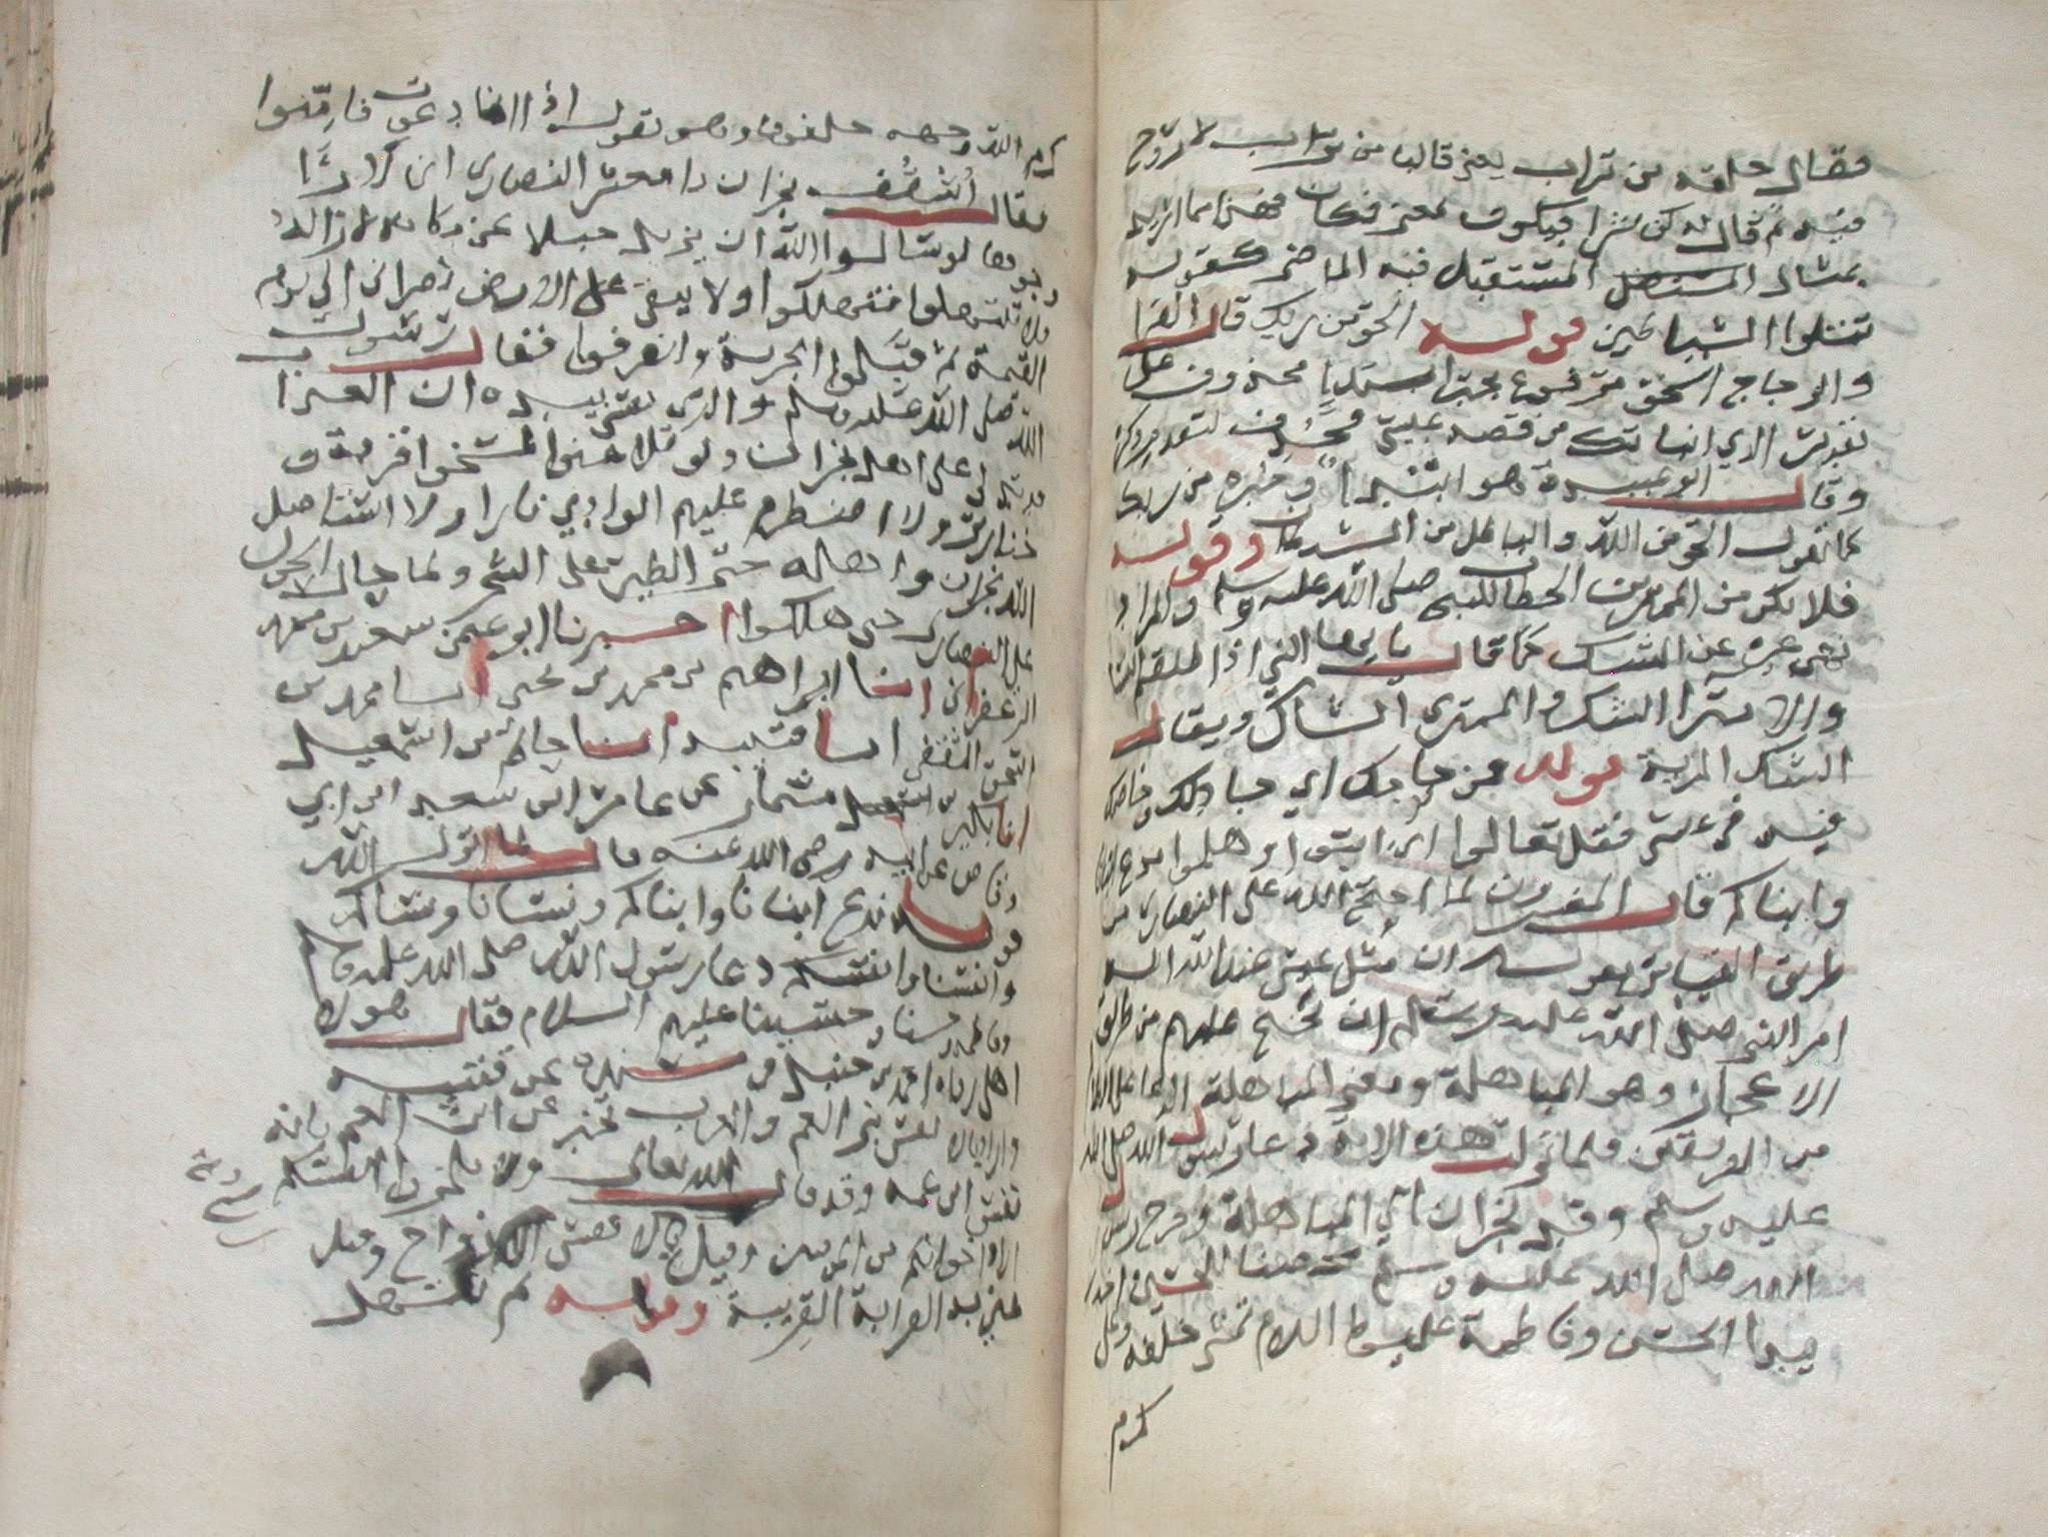 فقال خلقه من تراب يعني قالبا من تراب لا روح
فيه ثم قال له كن بشرا فيكون بمعنى فكان فهذا مما اريد
بمثال المستقبل المستقبل فيه الماضي كقوله
تتلوا الشياطين قوله الحق من ربك قال الفرا
والزجاج الحق مرفوع بخبر ابتدا محذوف على
تقدير الذي انباتك من قصة عيسى فحذف لتقدم ذكره
وقال ابو عبيدة هو ابتدا وخبره من ربك
كما تقول الحق من الله والباطل من الشيطان وقوله
فلا تكن من الممترين الخطاب للنبي صلى الله عليه وسلم والمراد
نهي غيره عن الشك كما قال يا ايها النبي اذا طلقتم النسا
والامترا الشك والممتري الشاك ويقال
الشك المرية قوله فمن حاجك اي جادلك وخاصمك
فيه في عيسى فقل تعالوا اي ايتوا وهلموا ندع ابنانا
وابناكم قال المفسرون لما احتج الله على النصارى من
طريق القياس بقوله ان مثل عيسى عند الله الاية
امر النبي صلى الله عليه وسلم ان يحتج عليهم من طريق
الاعجاز وهو المباهلة ومعنى المباهلة الدعا على الظالم
من الفريقين فلما نزلت هذه الاية دعا رسول الله صلى الله
عليه وسلم وفد نجران الى المباهلة وخرج رسول
الله صلى الله عليه وسلم محتضنا للحسين اخذا
بيد الحسن وفاطمة عليها السلام تمشي خلفه وعلي
كرم
كرم الله وجهه خلفها وهو يقول اذا انا دعوت فامنوا
فقال اسقف نجران يا معشر النصارى اني لارى
وجوها لو سالوا الله ان يزيل جبلا عن مكانه لازاله
ولا تبتهلوا فتهلكوا ولا يبقى على الارض نصراني الى يوم
القيمة ثم قبلوا الجزية وانصرفوا فقال رسول
الله صلى الله عليه وسلم والذي نفسي بيده ان العذاب
قد تدلى على اهل نجران ولو تلاعنوا لمسخوا قردة و
خنازير ولاضطرم عليهم الوادي نارا ولا استاصل
الله نجران واهله حتى الطير على الشجر ولما حال الحول
على النصارى حتى هلكوا اخبرنا ابو عمن سعيد بن محمد
الزعفراني انا ابراهيم بن محمد بن يحيى انا محمد بن
اسحق الثقفي انا قتيبة انا حاتم بن اسمعيل
انا بكير بن مسمار عن عامر ابن سعد ابن ابي
وقاص عن ابيه رضي الله عنه قال لما انزل الله
قوله ندع ابنانا وابناكم ونسانا ونساكم
وانفسنا وانفسكم دعا رسول الله صلى الله عليه وسلم
وفاطمة وحسنا وحسينا عليهم السلام فقال هولا
اهلي رواه احمد بن حنبل في مسنده عن قتيبة
واراد بالانفس بني العم والعرب تخبر عن ابن العم بانه
نفس ابن عمه وقد قال الله تعالى ولا تلمزوا انفسكم
اراد اخوانكم من المومنين وقيل اراد بالانفس الازواج وقيل
عني به القرابة القريبة وقوله ثم نبتهل